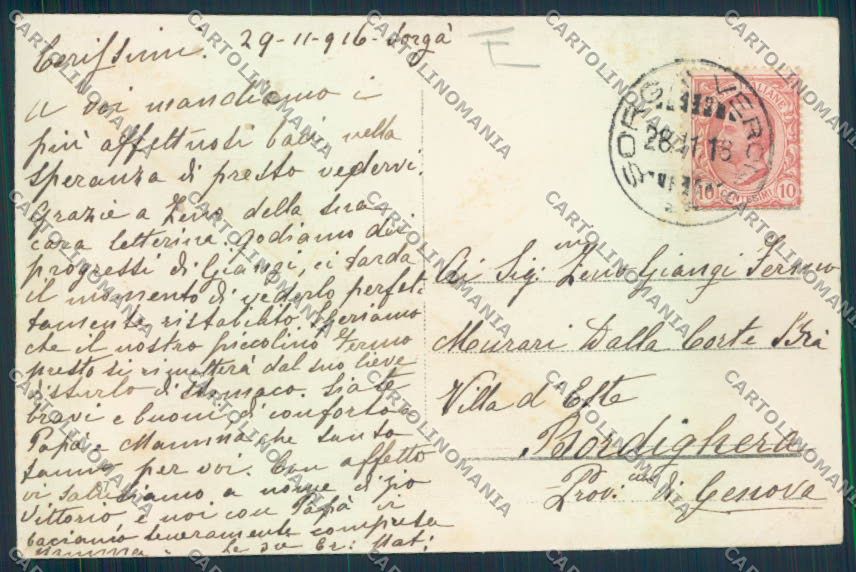 Carissimi. 29-11-916-Sorgà
E
A voi mandiamo i
più affettuosi baci nella
speranza di presto vedervi.
Grazie a Zeno della sua
cara letterina. Godiamo dei
progressi di Giangi, ci tarda
il momento di vederlo perfet-
tamente ristabilito. Speriamo
che il nostro piccolino Fermo
presto si rimetterà dal suo lieve
disturbo di stomaco. Siate
bravi e buoni di conforto a
Papà e Mamma che tanto
fanno per voi. Con affetto
vi salutiamo a nome
Vittorio e noi con Papà vi
baciamo teneramente compresa
Mamma
SORGÀ VERONA
28 11 16
ITALIANE
10 CENTESIMI 10
Ai Sig:ri Zeno Giangi Fermo
Murari Dalla Corte Brà
Villa d'Este
Bordighera
Prov: di Genova
CARTOLINOMANIA